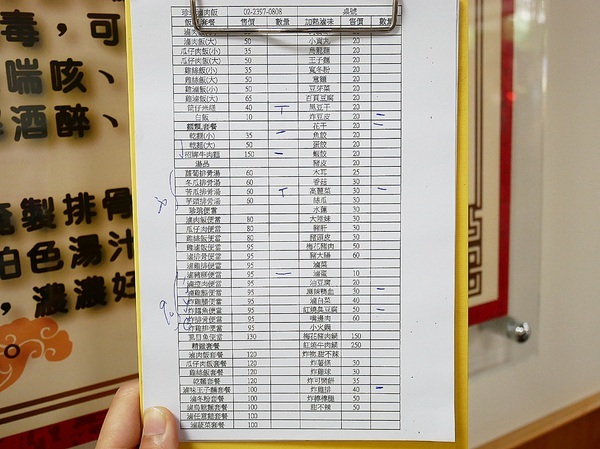 毒，可
喘咳、
酒醉、
醃製排骨
白色湯汁
，濃濃好
珍珠滷肉飯 02-2397-0808 桌號
飯類套餐 售價 數量 加熱滷味 售價 數量
滷肉飯(小) 35 20
滷肉飯(大) 50 小貢丸 20
瓜仔肉飯(小) 35 烏龍麵 20
瓜仔肉飯(大) 50 王子麵 20
雞絲飯(小) 35 寬冬粉 20
雞絲飯(大) 50 意麵 20
雞滷飯(小) 50 豆芽菜 20
雞滷飯(大) 65 百頁豆腐 20
筒仔米糕 40 黑豆干 20
白飯 10 炸豆皮 20
麵類套餐 花干 20
乾麵(小) 35 魚餃 20
乾麵(大) 50 蛋餃 20
招牌牛肉麵 150 蝦餃 20
湯品 豬皮 20
蘿蔔排骨湯 60 木耳 25
冬瓜排骨湯 60 香菇 30
苦瓜排骨湯 60 高麗菜 50
芋頭排骨湯 60 絲瓜 30
珍珠便當 水蓮 30
滷肉飯便當 80 大陸妹 30
瓜仔肉便當 80 豬肝 30
雞絲飯便當 80 豬頭皮 30
雞滷飯便當 95 梅花豬肉 50
滷排骨便當 95 豬大腸 60
滷雞排便當 95 滷菜
滷豬腳便當 95 滷蛋 10
滷控肉便當 95 油豆腐 20
滷雞腿便當 95 麻辣鴨血 30
炸雞腿便當 95 滷白菜 40
炸鱈魚便當 95 紅燒臭豆腐 50
炸排骨便當 95 嘴邊肉 60
炸雞排便當 95 小火鍋
虱目魚便當 130 梅花豬肉鍋 150
精緻套餐 紅燒牛肉鍋 250
滷肉飯套餐 120 炸物.甜不辣
瓜仔肉飯套餐 120 炸薯條 30
雞絲飯套餐 120 炸雞球 30
乾麵套餐 120 炸可樂餅 35
滷味王子麵套餐 100 炸雞排 40
滷冬粉套餐 100 炸檸檬腿 50
滷烏龍麵套餐 100 甜不辣 50
滷任意麵套餐 100
滷蔬菜套餐 100